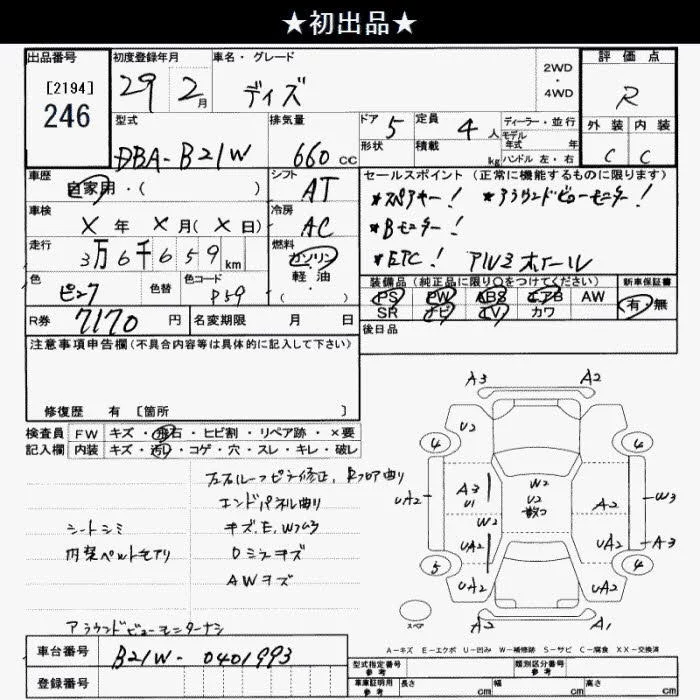 ★初出品★
出品番号
[2194]
246
初度登録年月
29 2月
車名・グレード
デイズ
2WD
・
4WD
評価点
R
外装 内装
C C
型式
DBA-B21W
排気量
660 CC
ドア 5
形状
定員 4 人
積載 kg
ディーラー・並行
モデル
年式 年
ハンドル 左・右
車歴
自家用・( )
シフト
AT
車検
X 年 X 月( X 日)
冷房
AC
走行
3万6千659km
燃料
ガソリン
軽・油
・( )
色
ピンク
色替
色コード
P59
R券 7170 円
名変期限 月 日
セールスポイント(正常に機能するものに限ります)
*スペアキー! *アラウンドビューモニター!
*Bモニター!
*ETC! アルミホイール
装備品(純正品に限り○をつけてください)
PS PW ABS エアB AW
SR ナビ TV カワ
新車保証書
有・無
後日品
注意事項申告欄(不具合内容等は具体的に記入して下さい)
修復歴 有 [箇所 ]
検査員 FW キズ・飛石・ヒビ割・リペア跡・×要
記入欄 内装 キズ・汚れ・コゲ・穴・スレ・キレ・破レ
左右ルーフピラ修正、Rフロア曲り
エンドパネル曲り
シートシミ
キズ、E、Wアリ
内装ペットモアリ
Dミラキズ
AWキズ
アラウンドビューモニターナシ
A3 A2
U2
4 4
UA2 A3 U1 W2 U2 散つ A2 W3
W2
UA2 UA2 A3
5 4
UA2 UA2
スペア
A2 A1
A-キズ E-エクボ U-凹み W-補修跡 S-サビ C-腐食 XX-交換済
車台番号
B21W-0401993
登録番号
型式指定番号
参考
類別区分番号
参考
車庫証明用
参考
長さ cm
幅 cm
高さ cm